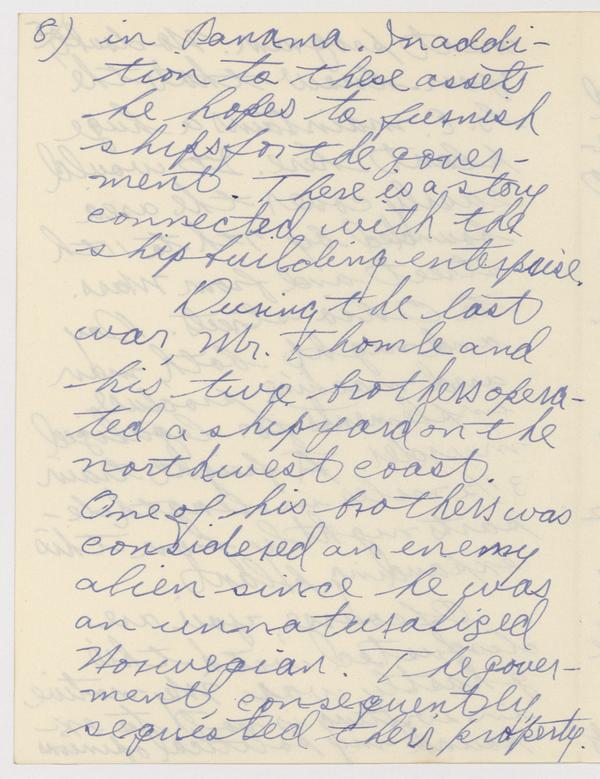 8) in Panama. In addi-
tion to these assets
he hopes to furnish
ships for the gover-
ment. There is a story
connected with the
ship building enterprise.
During the last
war, Mr. Thomle and
his two brothers opera-
ted a shipyard on the
northwest coast.
One of his brothers was
considered an enemy
alien since he was
an unnaturalized
Norwegian. The gover-
ment, consequently,
sequested their property.